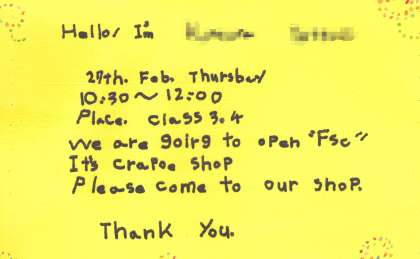 Hello! I'm
27th. Feb. Thursday
10:30~12:00
Place. Class 3.4
We are going to open "Fsc"
It's crapoe shop
Please come to our shop.
Thank You.